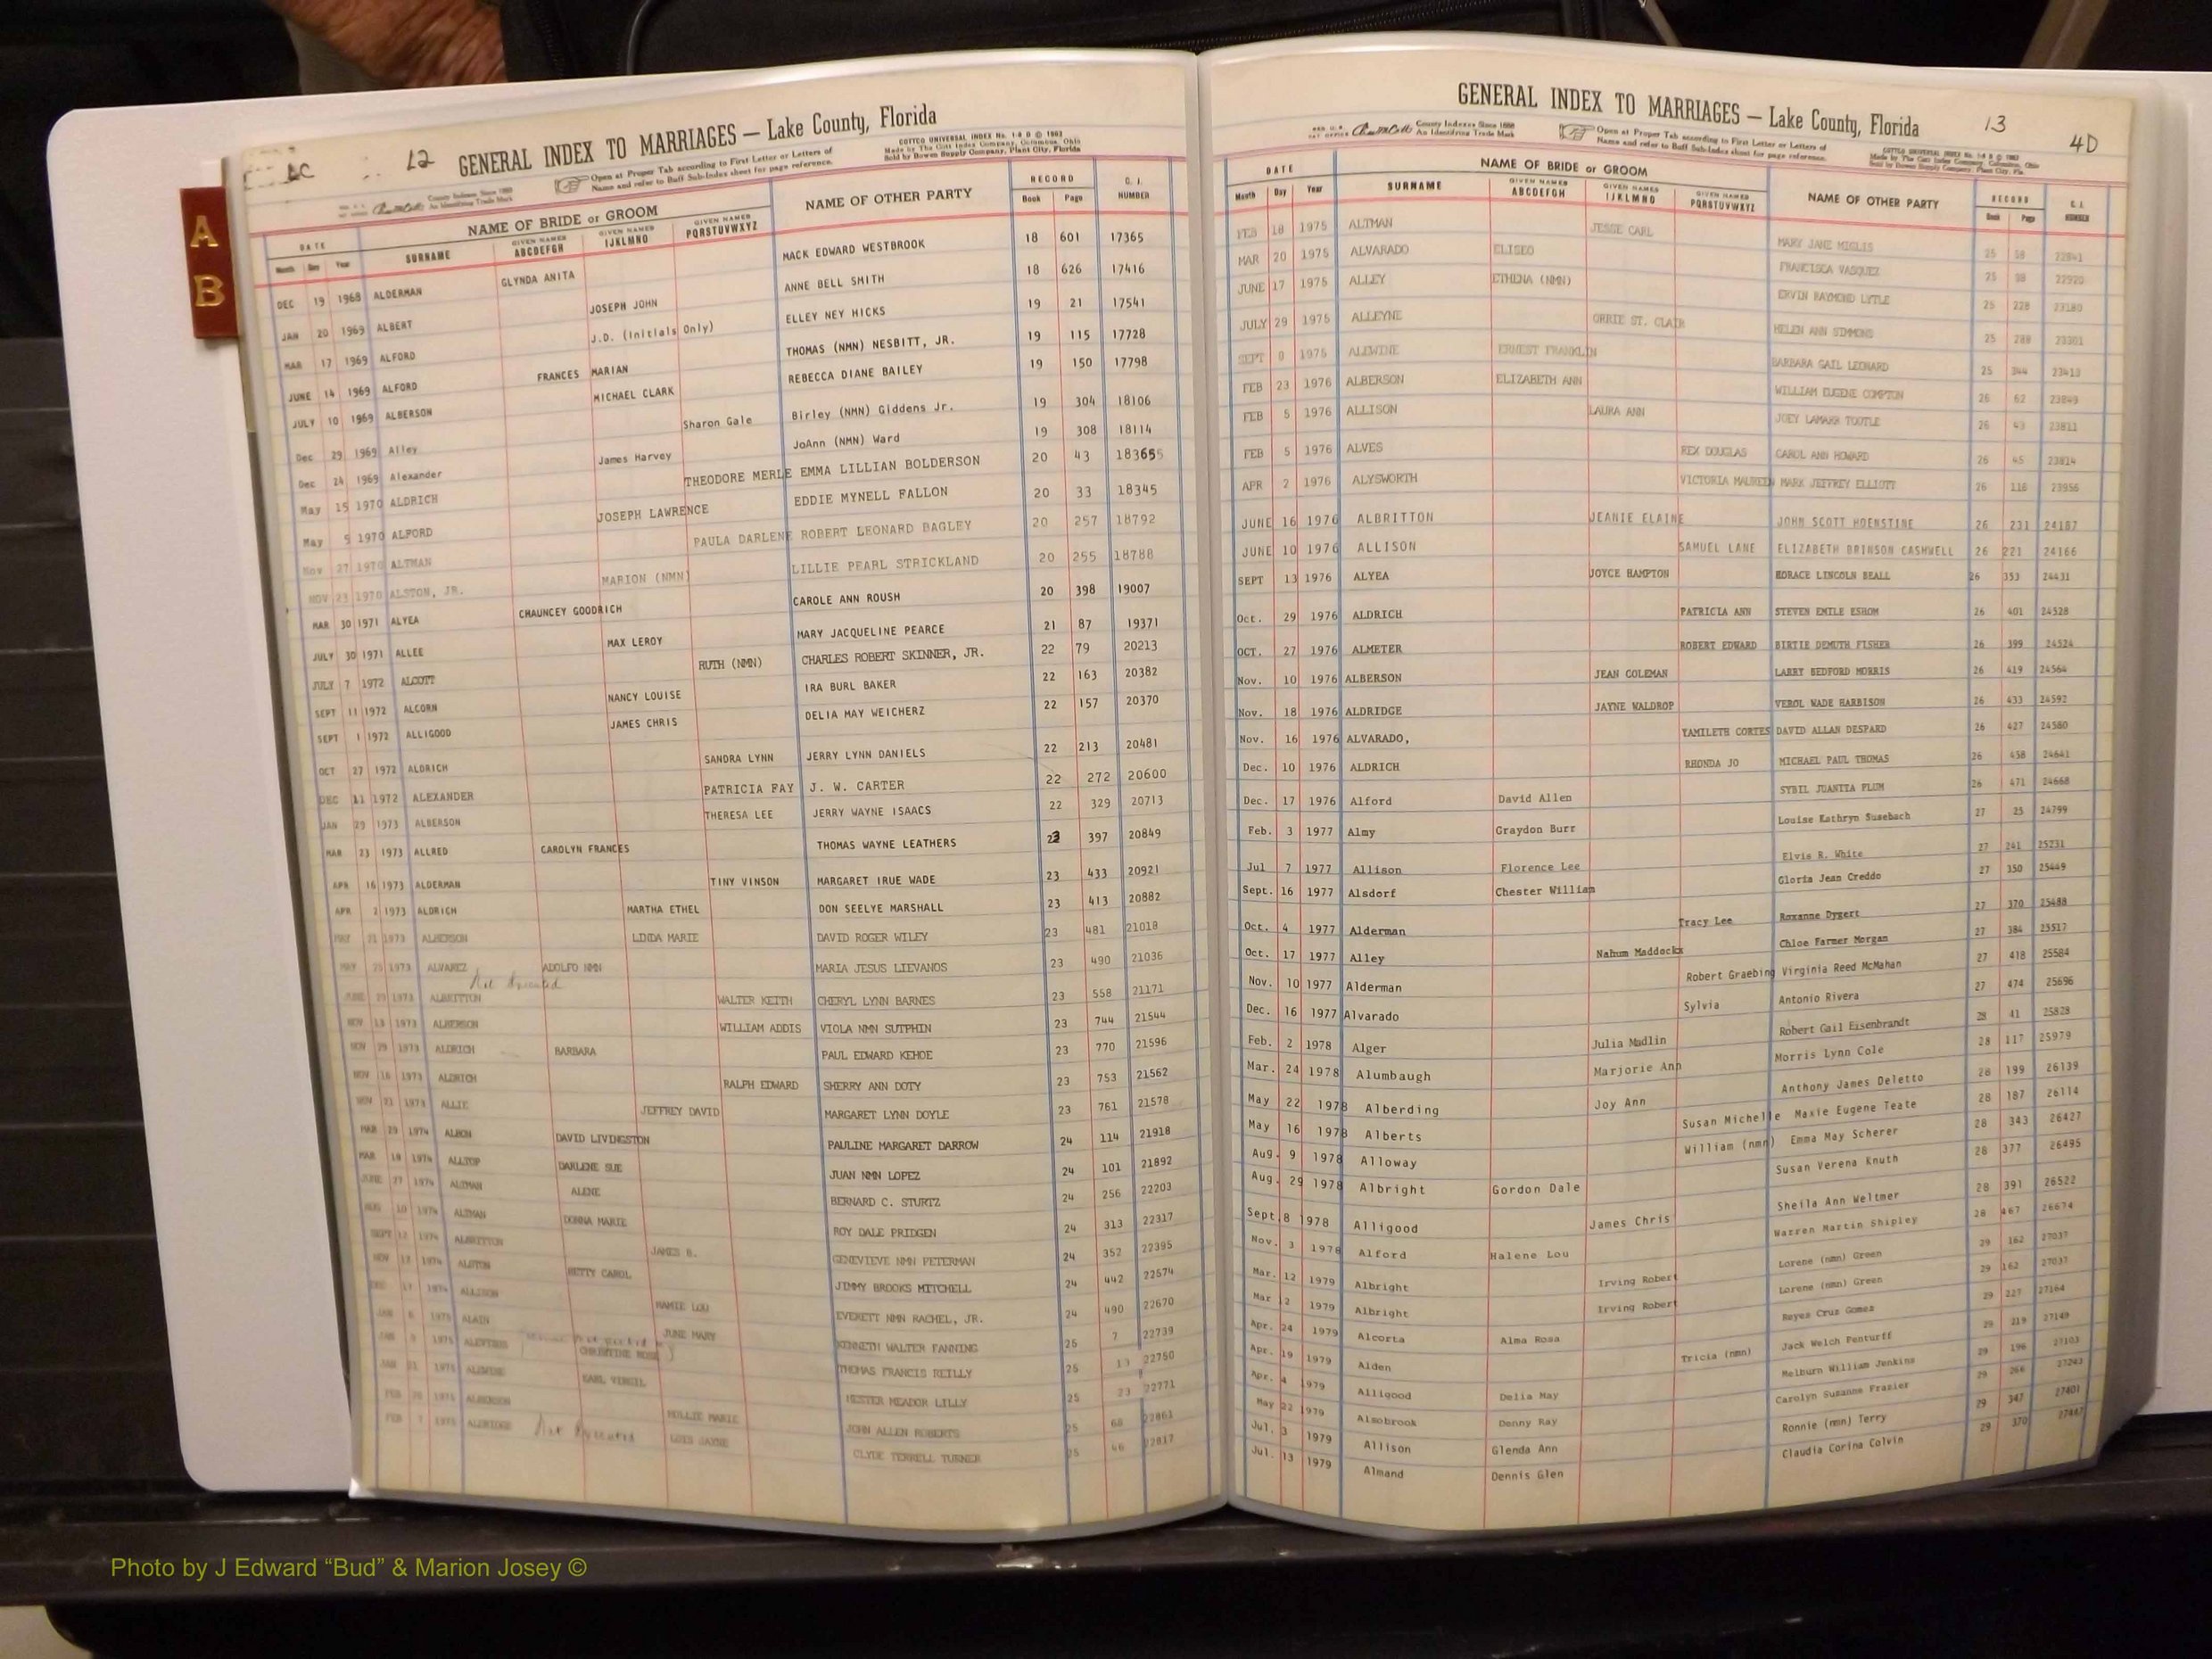 A
B
AC
12
GENERAL INDEX TO MARRIAGES — Lake County, Florida
County Indexes Since 1888
An Identifying Trade Mark
Open at Proper Tab according to First Letter or Letters of
Name and refer to Buff Sub-Index sheet for page reference.
COTTCO UNIVERSAL INDEX No. 1-8 D © 1963
Made by The Cott Index Company, Columbus, Ohio
Sold by Bowen Supply Company, Plant City, Florida
DATE NAME OF BRIDE or GROOM NAME OF OTHER PARTY RECORD C. I.
Month Day Year SURNAME GIVEN NAMES ABCDEFGH GIVEN NAMES IJKLMNO GIVEN NAMES PQRSTUVWXYZ Book Page NUMBER
DEC 19 1968 ALDERMAN GLYNDA ANITA MACK EDWARD WESTBROOK 18 601 17365
JAN 20 1969 ALBERT JOSEPH JOHN ANNE BELL SMITH 18 626 17416
MAR 17 1969 ALFORD J.D. (Initials Only) ELLEY NEY HICKS 19 21 17541
JUNE 14 1969 ALFORD FRANCES MARIAN THOMAS (NMN) NESBITT, JR. 19 115 17728
JULY 10 1969 ALBERSON MICHAEL CLARK REBECCA DIANE BAILEY 19 150 17798
Dec 29 1969 Alley Sharon Gale Birley (NMN) Giddens Jr. 19 304 18106
Dec 24 1969 Alexander James Harvey JoAnn (NMN) Ward 19 308 18114
May 15 1970 ALDRICH THEODORE MERLE EMMA LILLIAN BOLDERSON 20 43 183655
May 5 1970 ALFORD JOSEPH LAWRENCE EDDIE MYNELL FALLON 20 33 18345
Nov 27 1970 ALTMAN PAULA DARLENE ROBERT LEONARD BAGLEY 20 257 18792
NOV 23 1970 ALSTON, JR. MARION (NMN) LILLIE PEARL STRICKLAND 20 255 18788
MAR 30 1971 ALYEA CHAUNCEY GOODRICH CAROLE ANN ROUSH 20 398 19007
JULY 30 1971 ALLEE MAX LEROY MARY JACQUELINE PEARCE 21 87 19371
JULY 7 1972 ALCOTT RUTH (NMN) CHARLES ROBERT SKINNER, JR. 22 79 20213
SEPT 11 1972 ALCORN NANCY LOUISE IRA BURL BAKER 22 163 20382
SEPT 1 1972 ALLIGOOD JAMES CHRIS DELIA MAY WEICHERZ 22 157 20370
OCT 27 1972 ALDRICH SANDRA LYNN JERRY LYNN DANIELS 22 213 20481
DEC 11 1972 ALEXANDER PATRICIA FAY J. W. CARTER 22 272 20600
JAN 29 1973 ALBERSON THERESA LEE JERRY WAYNE ISAACS 22 329 20713
MAR 23 1973 ALLRED CAROLYN FRANCES THOMAS WAYNE LEATHERS 23 397 20849
APR 16 1973 ALDERMAN TINY VINSON MARGARET IRUE WADE 23 433 20921
APR 2 1973 ALDRICH MARTHA ETHEL DON SEELYE MARSHALL 23 413 20882
MAY 21 1973 ALBERSON LINDA MARIE DAVID ROGER WILEY 23 481 21018
MAY 25 1973 ALVAREZ ADOLFO NMN MARIA JESUS LIEVANOS 23 490 21036
JUNE 29 1973 ALBRITTON WALTER KEITH CHERYL LYNN BARNES 23 558 21171
NOV 13 1973 ALBERSON WILLIAM ADDIS VIOLA NMN SUTPHIN 23 744 21544
NOV 29 1973 ALDRICH BARBARA PAUL EDWARD KEHOE 23 770 21596
NOV 16 1973 ALDRICH RALPH EDWARD SHERRY ANN DOTY 23 753 21562
NOV 21 1973 ALLIE JEFFREY DAVID MARGARET LYNN DOYLE 23 761 21578
MAR 29 1974 ALBON DAVID LIVINGSTON PAULINE MARGARET DARROW 24 114 21918
MAR 18 1974 ALLTOP DARLENE SUE JUAN NMN LOPEZ 24 101 21892
JUNE 27 1974 ALTMAN ALENE BERNARD C. STURTZ 24 256 22203
AUG 10 1974 ALTMAN DONNA MARIE ROY DALE PRIDGEN 24 313 22317
SEPT 12 1974 ALBRITTON JAMES B. GENEVIEVE NMN PETERMAN 24 352 22395
NOV 12 1974 ALSTON BETTY CAROL JIMMY BROOKS MITCHELL 24 442 22574
DEC 17 1974 ALLISON MAMIE LOU EVERETT NMN RACHEL, JR. 24 490 22670
JAN 6 1975 ALAIN JUNE MARY KENNETH WALTER FANNING 25 7 22739
JAN 1975 CHRISTINE ROSE THOMAS FRANCIS REILLY 25 13 22750
JAN 1975 ALEWINE EARL VIRGIL HESTER MEADOR LILLY 25 23 22771
FEB 1975 ALBERSON MOLLIE MARIE JOHN ALLEN ROBERTS 25 68 22861
FEB 1975 ALDRIDGE LOIS JAYNE CLYDE TERRELL TURNER 25 46 22817
13
4D
GENERAL INDEX TO MARRIAGES — Lake County, Florida
County Indexes Since 1888
An Identifying Trade Mark
Open at Proper Tab according to First Letter or Letters of
Name and refer to Buff Sub-Index sheet for page reference.
DATE NAME OF BRIDE or GROOM NAME OF OTHER PARTY RECORD C. I.
Month Day Year SURNAME GIVEN NAMES ABCDEFGH GIVEN NAMES IJKLMNO GIVEN NAMES PQRSTUVWXYZ Book Page NUMBER
FEB 18 1975 ALTMAN JESSE CARL MARY JANE MIGLIS 25 58 22841
MAR 20 1975 ALVARADO ELISEO FRANCISCA VASQUEZ 25 98 22920
JUNE 17 1975 ALLEY ETHENA (NMN) ERVIN RAYMOND LYTLE 25 228 23180
JULY 29 1975 ALLEYNE ORRIE ST. CLAIR HELEN ANN SIMMONS 25 288 23301
SEPT 9 1975 ALEWINE ERNEST FRANKLIN BARBARA GAIL LEONARD 25 344 23413
FEB 23 1976 ALBERSON ELIZABETH ANN WILLIAM EUGENE COMPTON 26 62 23849
FEB 5 1976 ALLISON LAURA ANN JOEY LAMARR TOOTLE 26 43 23811
FEB 5 1976 ALVES REX DOUGLAS CAROL ANN HOWARD 26 45 23814
APR 2 1976 ALYSWORTH VICTORIA MAUREEN MARK JEFFREY ELLIOTT 26 116 23956
JUNE 16 1976 ALBRITTON JEANIE ELAINE JOHN SCOTT HOENSTINE 26 231 24187
JUNE 10 1976 ALLISON SAMUEL LANE ELIZABETH BRINSON CASHWELL 26 221 24166
SEPT 13 1976 ALYEA JOYCE HAMPTON HORACE LINCOLN BEALL 26 353 24431
Oct. 29 1976 ALDRICH PATRICIA ANN STEVEN EMILE ESHOM 26 401 24528
OCT. 27 1976 ALMETER ROBERT EDWARD BIRTIE DEMUTH FISHER 26 399 24524
Nov. 10 1976 ALBERSON JEAN COLEMAN LARRY BEDFORD MORRIS 26 419 24564
Nov. 18 1976 ALDRIDGE JAYNE WALDROP VEROL WADE HARBISON 26 433 24592
Nov. 16 1976 ALVARADO, YAMILETH CORTES DAVID ALLAN DESPARD 26 427 24580
Dec. 10 1976 ALDRICH RHONDA JO MICHAEL PAUL THOMAS 26 458 24641
Dec. 17 1976 Alford David Allen SYBIL JUANITA PLUM 26 471 24668
Feb. 3 1977 Almy Graydon Burr Louise Kathryn Susebach 27 25 24799
Jul 7 1977 Allison Florence Lee Elvis R. White 27 241 25231
Sept. 16 1977 Alsdorf Chester William Gloria Jean Creddo 27 350 25449
Oct. 4 1977 Alderman Tracy Lee Roxanne Dygert 27 370 25488
Oct. 17 1977 Alley Nahum Maddocks Chloe Farmer Morgan 27 384 25517
Nov. 10 1977 Alderman Robert Graebing Virginia Reed McMahan 27 418 25584
Dec. 16 1977 Alvarado Sylvia Antonio Rivera 27 474 25696
Feb. 2 1978 Alger Julia Madlin Robert Gail Eisenbrandt 28 41 25828
Mar. 24 1978 Alumbaugh Marjorie Ann Morris Lynn Cole 28 117 25979
May 22 1978 Alberding Joy Ann Anthony James Deletto 28 199 26139
May 16 1978 Alberts Susan Michelle Maxie Eugene Teate 28 187 26114
Aug. 9 1978 Alloway William (nmn) Emma May Scherer 28 343 26427
Aug. 29 1978 Albright Gordon Dale Susan Verena Knuth 28 377 26495
Sept. 8 1978 Alligood James Chris Sheila Ann Weltmer 28 391 26522
Nov. 3 1978 Alford Halene Lou Warren Martin Shipley 28 467 26674
Mar. 12 1979 Albright Irving Robert Lorene (nmn) Green 29 162 27037
Mar 12 1979 Albright Irving Robert Lorene (nmn) Green 29 162 27037
Apr. 24 1979 Alcorta Alma Rosa Reyes Cruz Gomez 29 227 27164
Apr. 19 1979 Alden Tricia (nmn) Jack Welch Penturff 29 219 27149
Apr. 4 1979 Alligood Delia May Melburn William Jenkins 29 196 27103
May 22 1979 Almobrook Denny Ray Carolyn Susanne Frazier 29 266 27243
Jul. 3 1979 Allison Glenda Ann Ronnie (nmn) Terry 29 347 27401
Jul. 13 1979 Almand Dennis Glen Claudia Corina Colvin 29 370 27447
Photo by J Edward “Bud” & Marion Josey ©